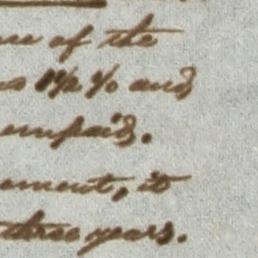 of the
1½ % and
unpaid.
ement, it
three years.